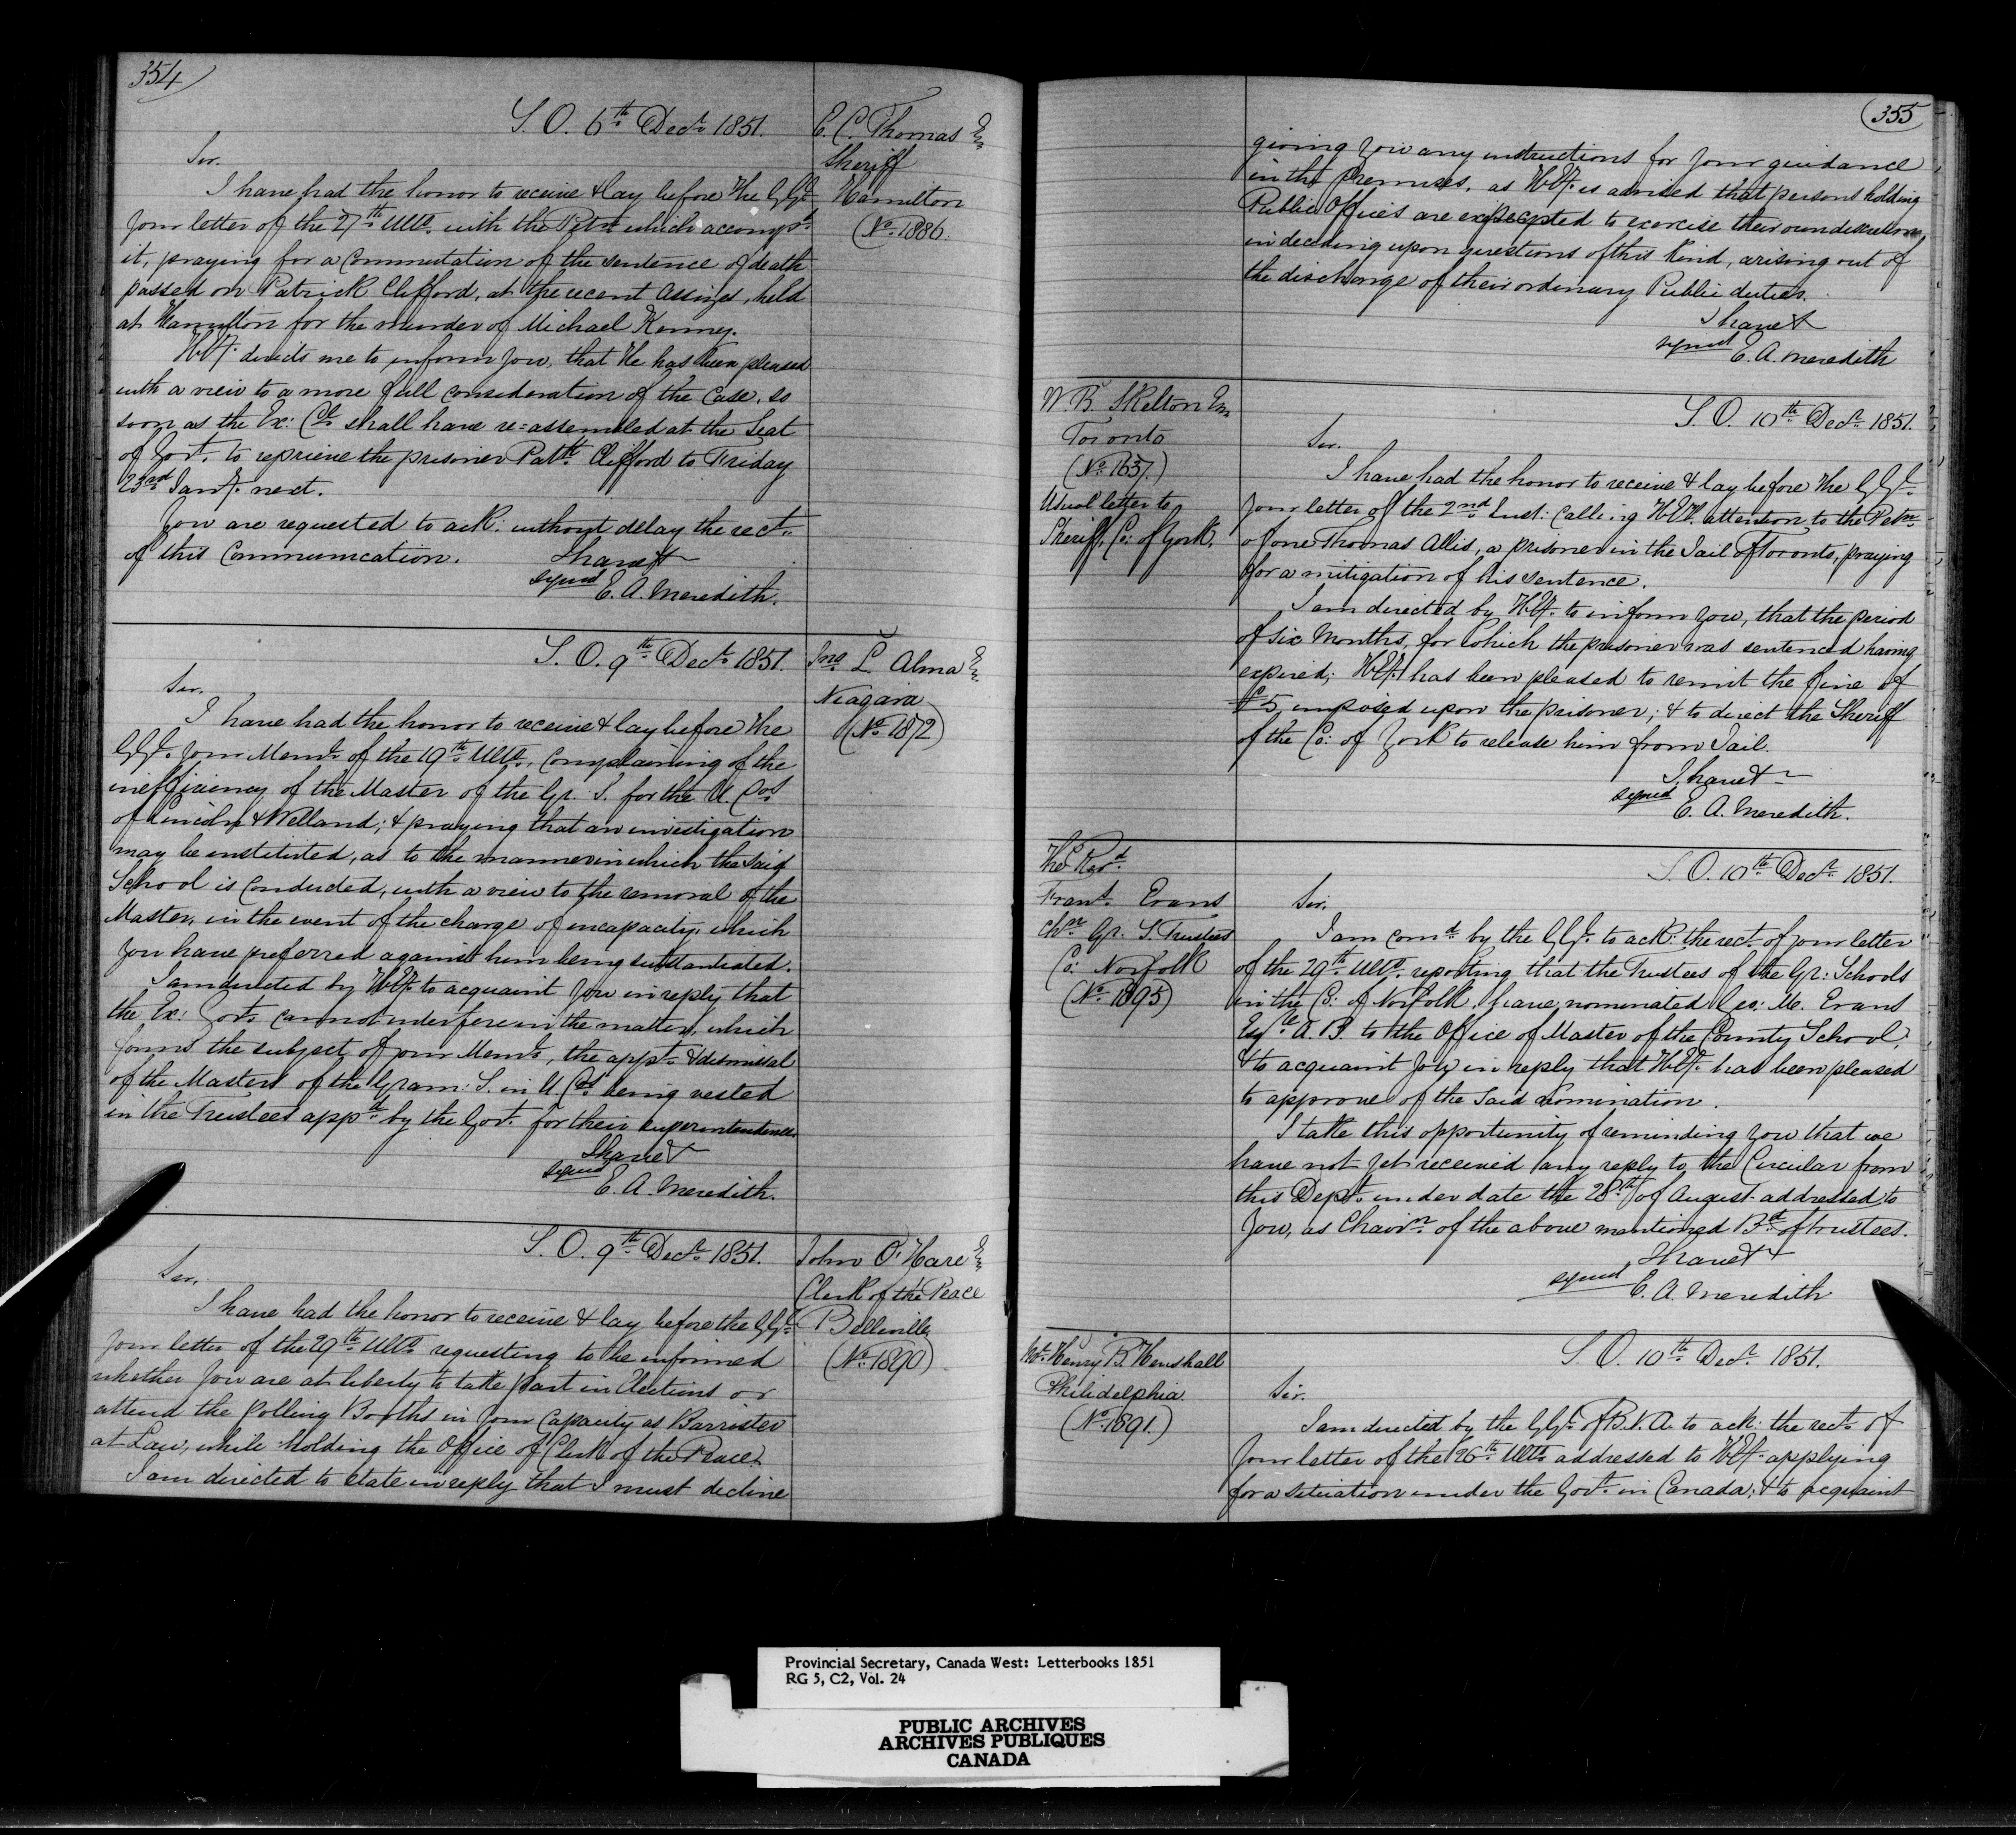 354
S. O. 6th Decr. 1851.
E. C. Thomas Esq
Sheriff
Hamilton
(No. 1886.
Sir.
I have had the honor to receive & lay before the G.G.
your letter of the 27th Ulto. with the Petn. which accompd.
it, praying for a commutation of the sentence of death
passed on Patrick Clifford, at the recent Assizes, held
at Hamilton for the murder of Michael Kenney.
H.Ey. directs me to inform you, that He has been pleased
with a view to a more full consideration of the case, so
soon as the Ex: Cl. shall have re=assembled at the Seat
of Govt. to reprieve the prisoner Patk. Clifford to Friday
23rd Jany. next.
You are requested to ack: without delay the rect.
of this communication.
I have &
signed E. A. Meredith.
S. O. 9th Decr. 1851.
Jno. L. Alma Esq
Niagara
(No. 1872)
Sir.
I have had the honor to receive & lay before the
G.G. your Meml. of the 19th Ulto. complaining of the
inefficiency of the Master of the Gr. S. for the U. Cos.
of Lincoln & Welland; & praying that an investigation
may be instituted, as to the manner in which the said
School is conducted, with a view to the removal of the
Master, in the event of the charge of incapacity, which
you have preferred against him being substantiated.
I am directed by H.Ey. to acquaint you in reply that
the Ex: Govt. cannot interfere in the matter, which
forms the subject of your Meml., the appt. & dismissal
of the Masters of the Gram: S. in U. Ca. being vested
in the Trustees appd. by the Govt. for their superintendence.
I have &
signed E. A. Meredith.
S. O. 9th Decr. 1851.
John O'Hare Esq
Clerk of the Peace
Belleville
(No. 1890)
Sir,
I have had the honor to receive & lay before the G.G.
your letter of the 29th Ulto. requesting to be informed
whether you are at liberty to take part in Elections or
attend the polling Booths in your Capacity as Barrister
at Law, while holding the Office of Clerk of the Peace.
I am directed to state in reply that I must decline
355
giving you any instructions for your guidance
in the premises, as H.Ey. is advised that persons holding
Public Offices are expected to exercise their own discretion,
in deciding upon questions of this kind, arising out of
the discharge of their ordinary Public duties.
I have &
signed E. A. Meredith
W. B. Skelton Esq
Toronto
(No. 1637.)
Usual letter to
Sheriff, Co: of York.
S. O. 10th Decr. 1851.
Sir.
I have had the honor to receive & lay before the G.G.
your letter of the 2nd Inst: calling H.Ey. attention to the Petn.
of one Thomas Allis, a prisoner in the Jail of Toronto, praying
for a mitigation of his sentence.
I am directed by H.Ey. to inform you, that the period
of six Months, for which the prisoner was sentenced having
expired; H.Ey. has been pleased to remit the fine of
£5, imposed upon the prisoner; & to direct the Sheriff
of the Co: of York to release him from Jail.
I have &
signed
E. A. Meredith.
The Revd.
Frans. Evans
Chn. Gr. S. Trustees
Co: Norfolk
(No. 1895)
S. O. 10th Decr. 1851.
Sir.
I am comd. by the G.G. to ack: the rect. of your letter
of the 29th Ulto. reporting that the Trustees of the Gr: Schools
in the Co: of Norfolk, have nominated Geo: M. Evans
Esqre. A. B. to the Office of Master of the County School,
& to acquaint you in reply that H.Ey. has been pleased
to approve of the said nomination.
I take this opportunity of reminding you that we
have not yet received any reply to the Circular from
this Dept. under date the 28th of August addressed to
you, as Chairn. of the above mentioned Bd. of trustees.
I have &
signed
E. A. Meredith
Henry B. Henshall
Philidelphia
(No. 1891.)
S. O. 10th Decr. 1851.
Sir.
I am directed by the G.G. of B.N.A. to ack: the rect. of
your letter of the 26th Ulto. addressed to H.Ey. applying
for a situation under the Govt. in Canada; & to acquaint
Provincial Secretary, Canada West: Letterbooks 1851
RG 5, C2, Vol. 24
PUBLIC ARCHIVES
ARCHIVES PUBLIQUES
CANADA